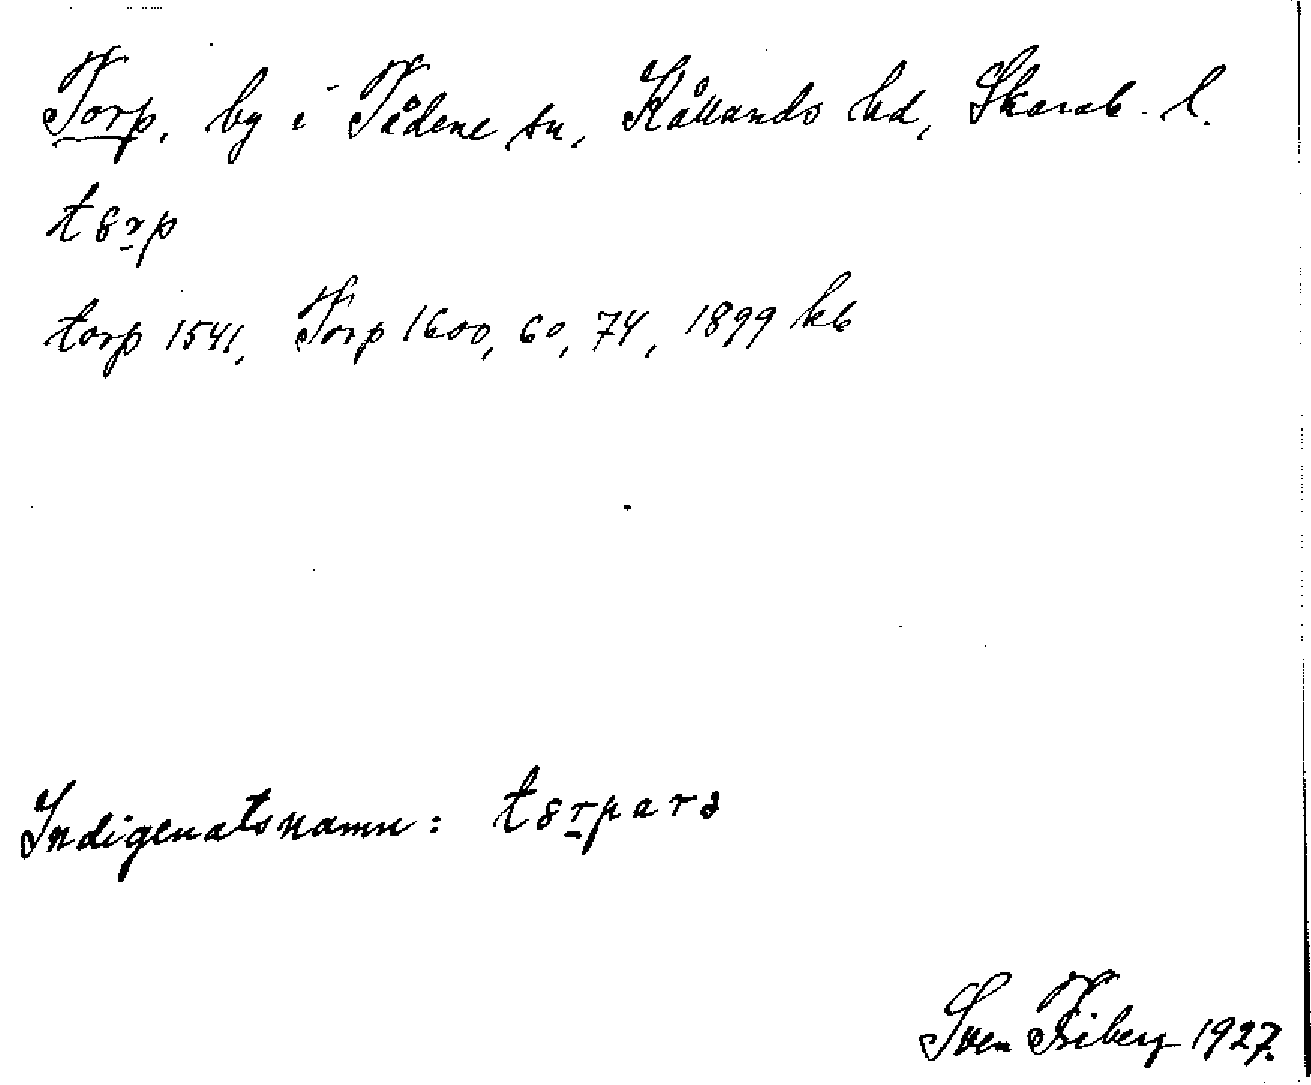 Torp, by i Tådene sn, Kållands hd, Skarab. l.
t8r̲p
torp 1541, Torp 1600, 60, 74, 1899 kb
Indigenatsnamn: t8r̲parə
Sven Fiberg 1927.